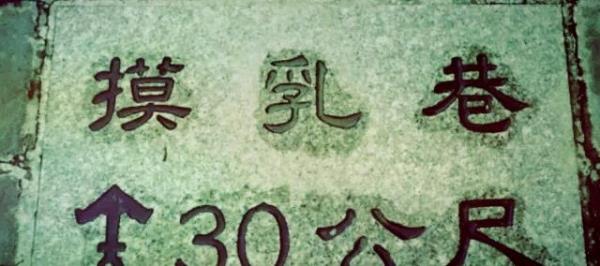 摸乳巷
↑30公尺